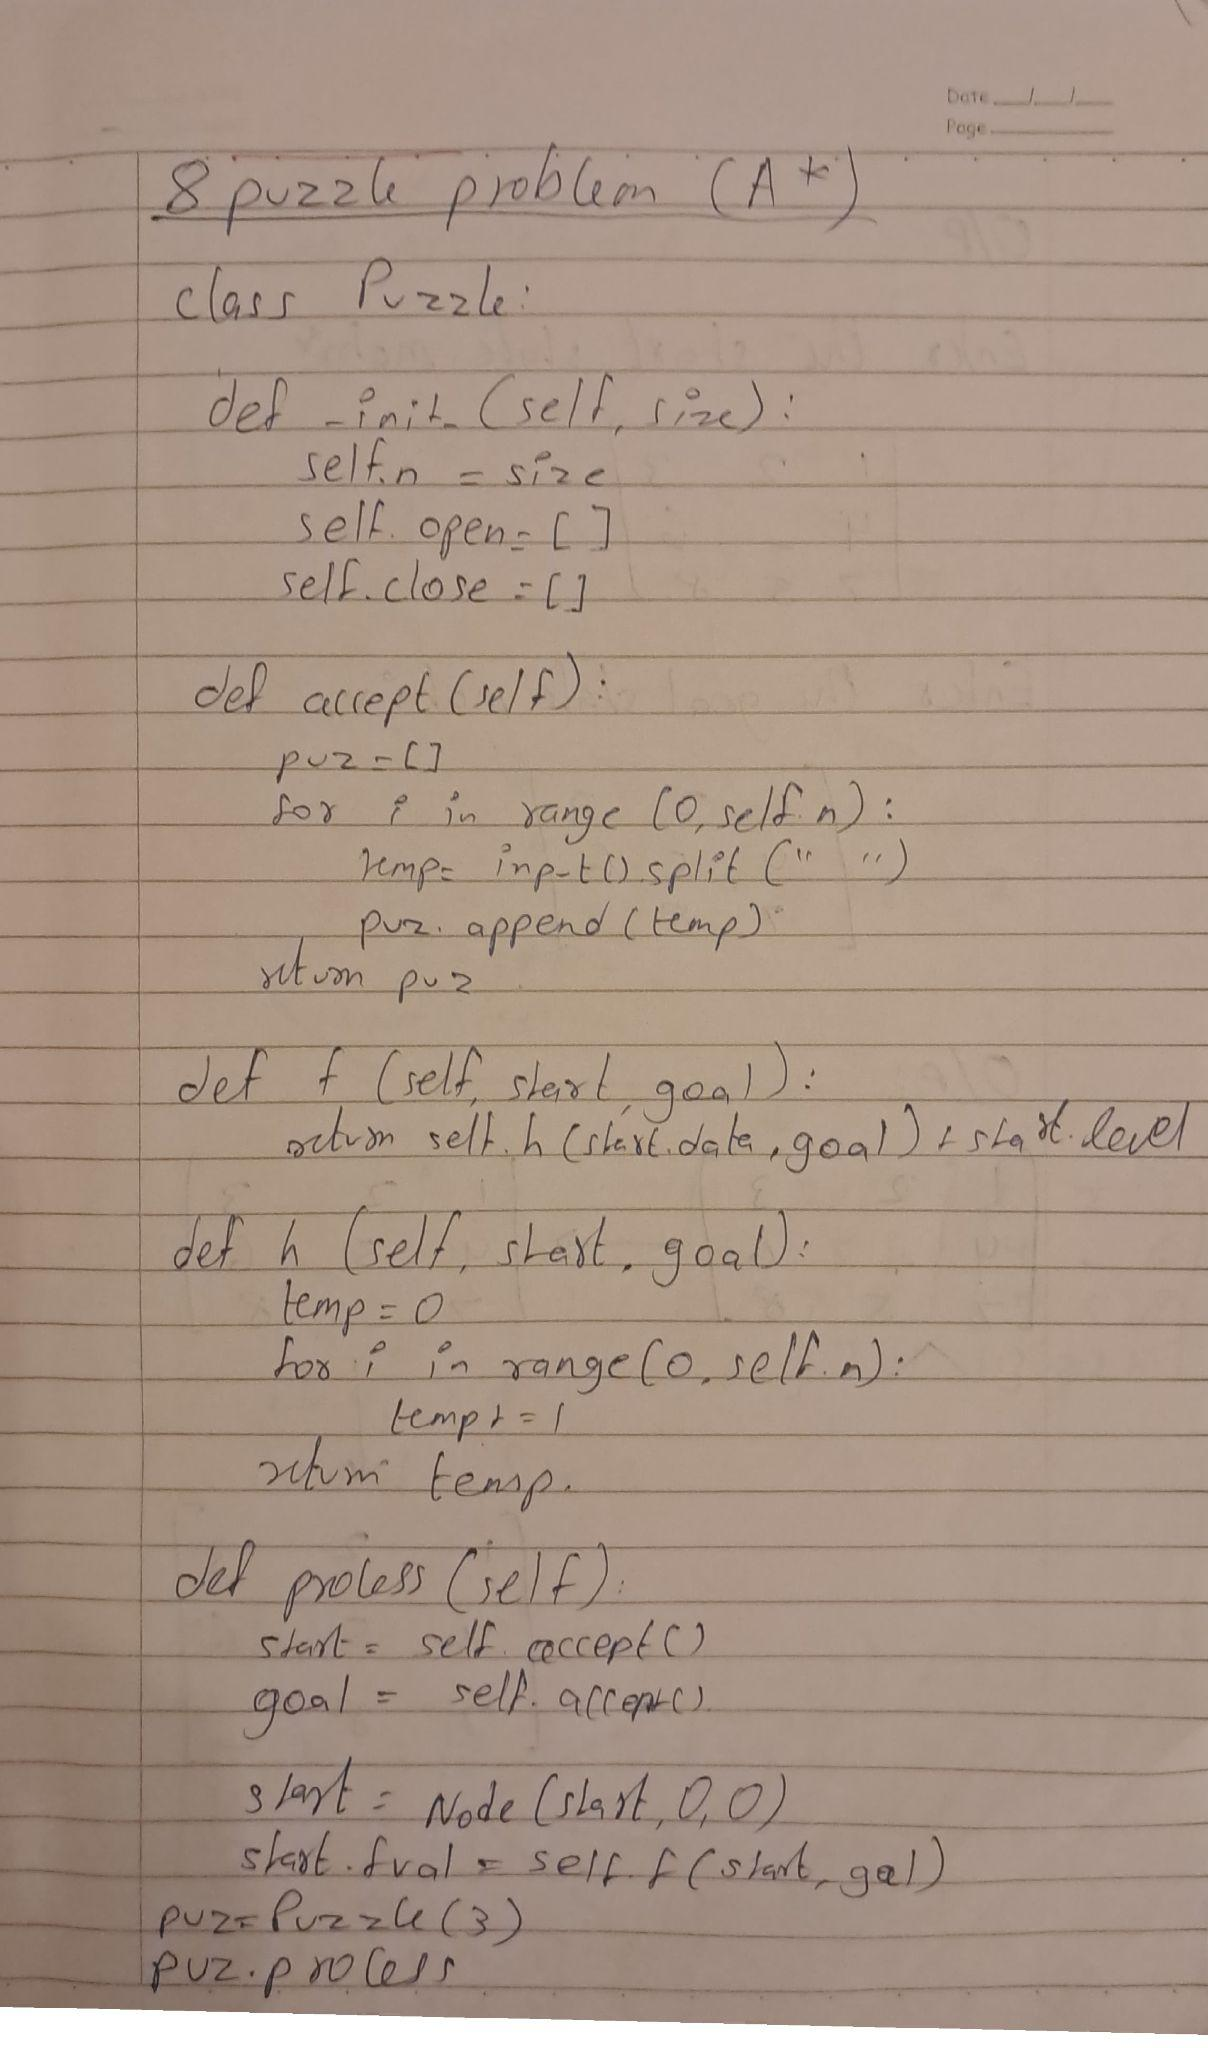 Date ___/___/___
Page
8 puzzle problem (A*)
class Puzzle:
def _init_ (self, size):
self.n = size
self.open = []
self.close = []
def accept (self):
puz = []
for i in range (0, self.n):
temp = input().split (" ")
puz.append (temp)
return puz
def f (self, start, goal):
return self.h (start.data, goal) + start.level
def h (self, start, goal):
temp = 0
for i in range (0, self.n):
temp += 1
return temp.
def process (self):
start = self.accept ()
goal = self.accept ()
start = Node (start, 0, 0)
start.fval = self.f (start, goal)
puz = Puzzle (3)
puz.process